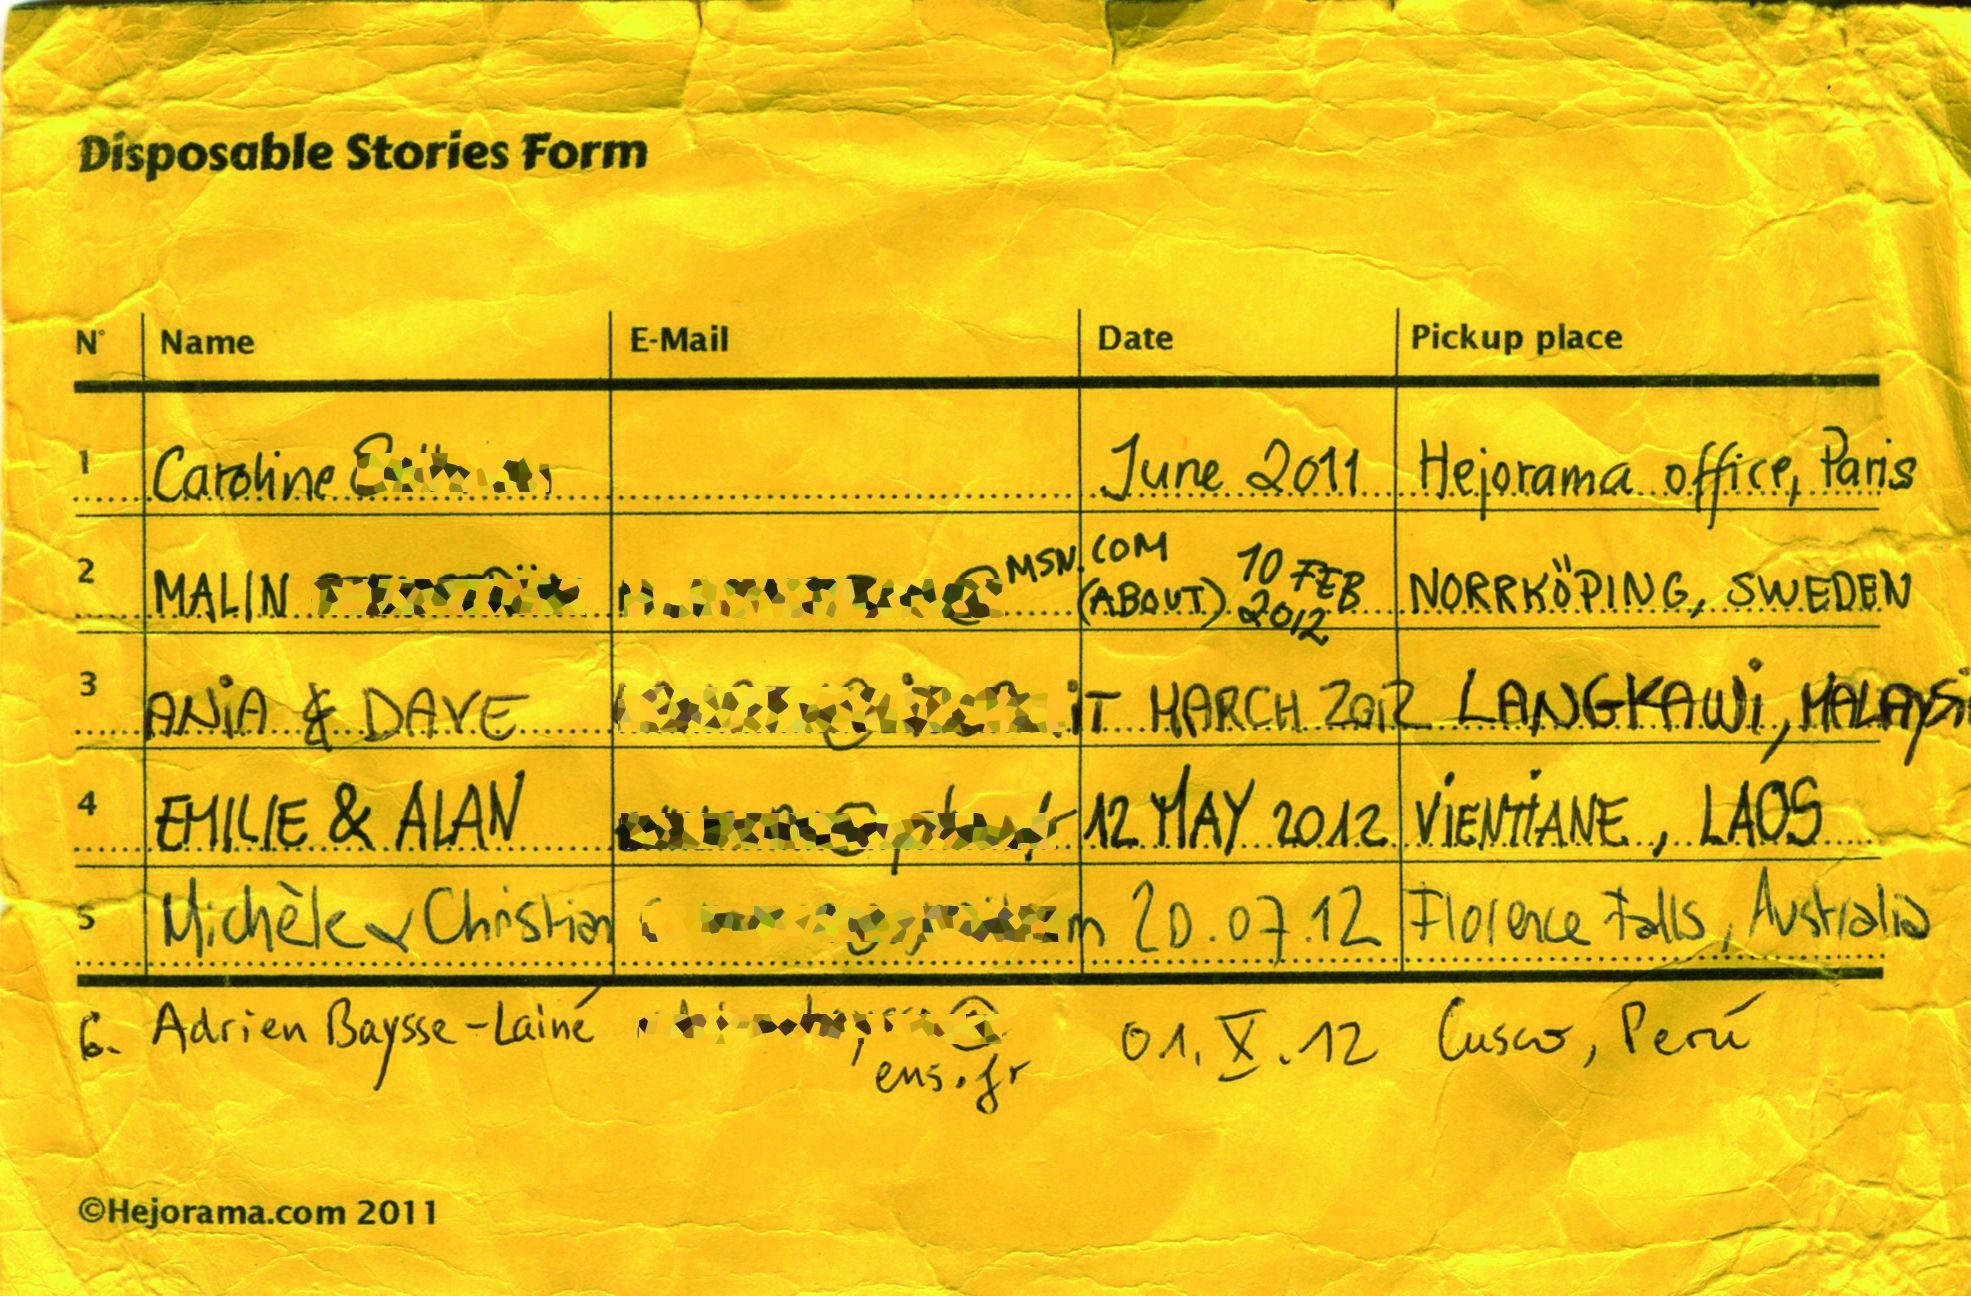 Disposable Stories Form
N° Name E-Mail Date Pickup place
1 Caroline June 2011 Hejorama office, Paris
2 MALIN @MSN.COM (ABOUT) 10 FEB 2012 NORRKÖPING, SWEDEN
3 ANiA & DAVE .iT MARCH 2012 LANGKAWi, MALAYSi
4 EMILIE & ALAN 12 MAY 2012 ViENTiANE, LAOS
5 Michèle & Christian 20.07.12 Florence Falls, Australia
6. Adrien Baysse-Lainé @ 01.X.12 Cusco, Perú
ens.fr
©Hejorama.com 2011